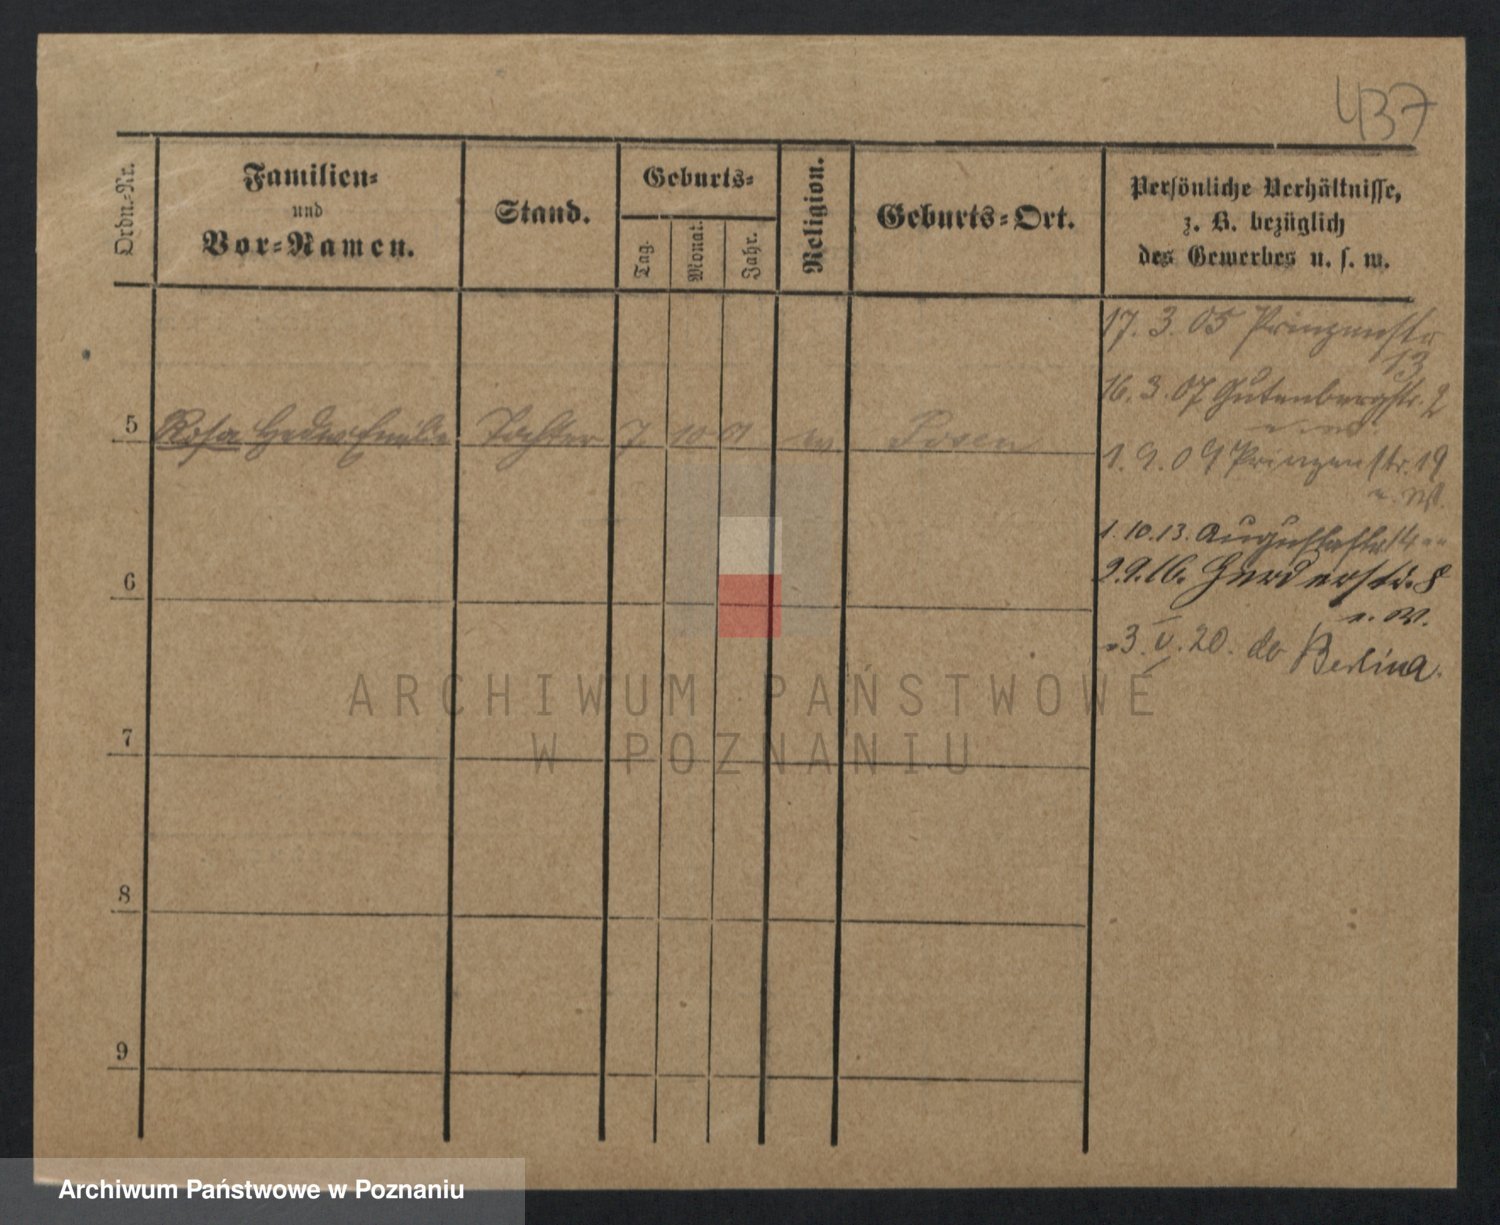 437
Ordn.-Nr.
Familien-
und
Vor-Namen.
Stand.
Geburts-
Tag.
Monat.
Jahr.
Religion.
Geburts-Ort.
Persönliche Verhältnisse,
z. B. bezüglich
des Gewerbes u. s. w.
17. 3. 05 Prinzenstr
13
16. 3. 07 Gutenbergstr. 2
5 Rosa Hedw Emilie Tochter 7 10 01 ev Posen
1. 9. 09 Prinzenstr. 19
u. W.
1. 10. 13. Augustastr 14
6
9.9.16. Herderstr. 8
u. W.
3. V. 20. do Berlina.
ARCHIWUM PAŃSTWOWE
W POZNANIU
7
8
9
Archiwum Państwowe w Poznaniu